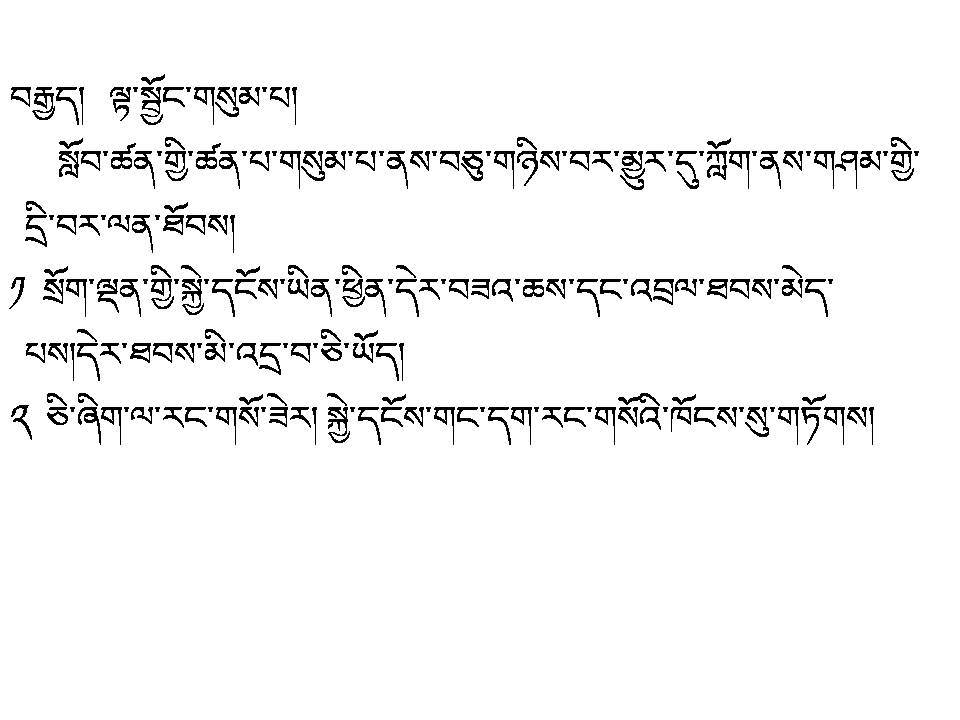 བརྒྱད། ལྟ་སྦྱོང་གསུམ་པ།
སློབ་ཚན་གྱི་ཚན་པ་གསུམ་པ་ནས་བཅུ་གཉིས་བར་མྱུར་དུ་ཀློག་ནས་གཤམ་གྱི་
དྲི་བར་ལན་ཐོབས།
༡ སྲོག་ལྡན་གྱི་སྐྱེ་དངོས་ཡིན་ཕྱིན་དེར་བཟའ་ཆས་དང་འབྲལ་ཐབས་མེད་
པས།དེར་ཐབས་མི་འདྲ་བ་ཅི་ཡོད།
༢ ཅི་ཞིག་ལ་རང་གསོ་ཟེར། སྐྱེ་དངོས་གང་དག་རང་གསོའི་ཁོངས་སུ་གཏོགས།